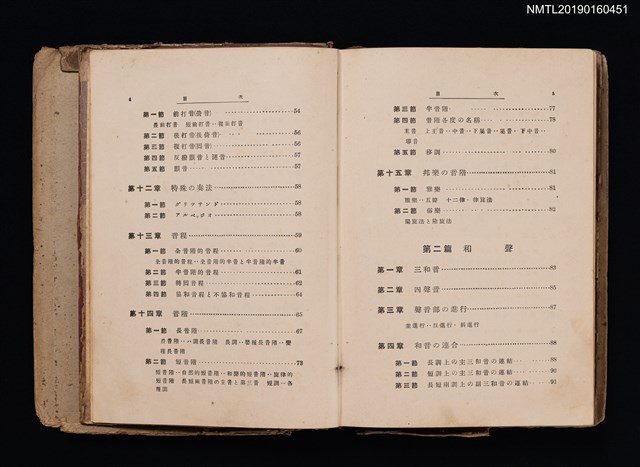 NMTL20190160451
4 目 次
第一節 前打音(倚音) 54
長前打音 短前打音 複前打音
第二節 後打音(後倚音) 56
第三節 56
第四節 反撥顫音と囘音 57
第五節 顫音 57
第十二章 特殊の奏法 58
第一節 グリッサンド 58
第二節 アルペッジオ 58
第十三章 音程 59
第一節 全音階的音程 60
全音階的音程 全音階的半音と半音階的半音
第二節 半音階的音程 61
第三節 轉囘音程 62
第四節 協和音程と不協和音程 64
第十四章 音階 65
第一節 長音階 67
長音階 ハ調長音階 長調
短長音階
第二節 短音階 73
短音階 自然的短音階 和聲的短音階 旋律的
短音階 長短兩音階の主音と第三音 短調 各
種調
目 次 5
第三節 半音階 77
第四節 音階各度の名稱 78
主音 上主音 中音 下屬音 屬音 下中音
導音
第五節 移調 80
第十五章 邦樂の音階 81
第一節 雅樂 81
雅樂 五聲 十二律 律旋法
第二節 俗樂 82
陽旋法と陰旋法
第二篇 和 聲
第一章 三和音 83
第二章 四聲音 85
第三章 聲音部の進行 87
並進行 反進行 斜進行
第四章 和音の連合 88
第一節 長調上の主三和音の連結 88
第二節 短調上の主三和音の連結 90
第三節 長短兩調上の副三和音の連結 91